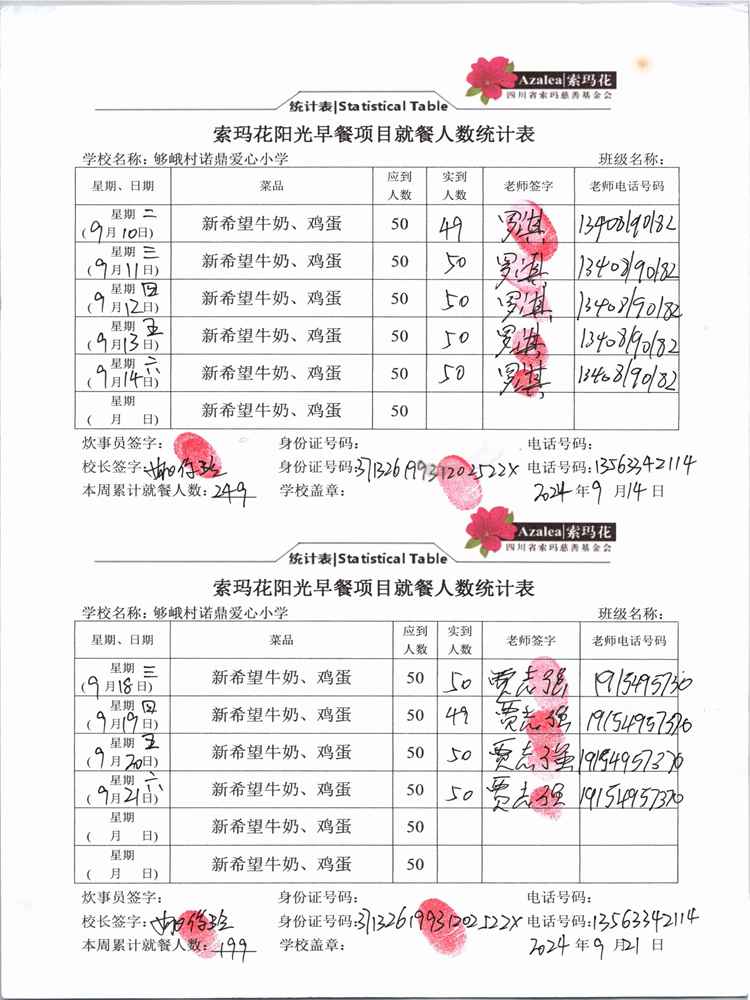 Azalea|索玛花
四川省索玛慈善基金会
统计表|Statistical Table
索玛花阳光早餐项目就餐人数统计表
学校名称：够峨村诺鼎爱心小学 班级名称：
星期、日期 菜品 应到人数 实到人数 老师签字 老师电话号码
星期 二 (9月10日) 新希望牛奶、鸡蛋 50 49 罗淇 13408190182
星期 三 (9月11日) 新希望牛奶、鸡蛋 50 50 罗淇 13408190182
星期 四 (9月12日) 新希望牛奶、鸡蛋 50 50 罗淇 13408190182
星期 五 (9月13日) 新希望牛奶、鸡蛋 50 50 罗淇 13408190182
星期 六 (9月14日) 新希望牛奶、鸡蛋 50 50 罗淇 13408190182
星期 ( 月 日) 新希望牛奶、鸡蛋 50
炊事员签字： 身份证号码： 电话号码：
校长签字： 身份证号码：37132619931202522X 电话号码：13563342114
本周累计就餐人数：249 学校盖章： 2024年9月14日
Azalea|索玛花
四川省索玛慈善基金会
统计表|Statistical Table
索玛花阳光早餐项目就餐人数统计表
学校名称：够峨村诺鼎爱心小学 班级名称：
星期、日期 菜品 应到人数 实到人数 老师签字 老师电话号码
星期 三 (9月18日) 新希望牛奶、鸡蛋 50 50 贾志强
星期 四 (9月19日) 新希望牛奶、鸡蛋 50 49 贾志强 19154957370
星期 五 (9月20日) 新希望牛奶、鸡蛋 50 50 贾志强 19154957370
星期 六 (9月21日) 新希望牛奶、鸡蛋 50 50 贾志强 19154957370
星期 ( 月 日) 新希望牛奶、鸡蛋 50
星期 ( 月 日) 新希望牛奶、鸡蛋 50
炊事员签字： 身份证号码： 电话号码：
校长签字： 身份证号码：37132619931202522X 电话号码：13563342114
本周累计就餐人数：199 学校盖章： 2024年9月21日